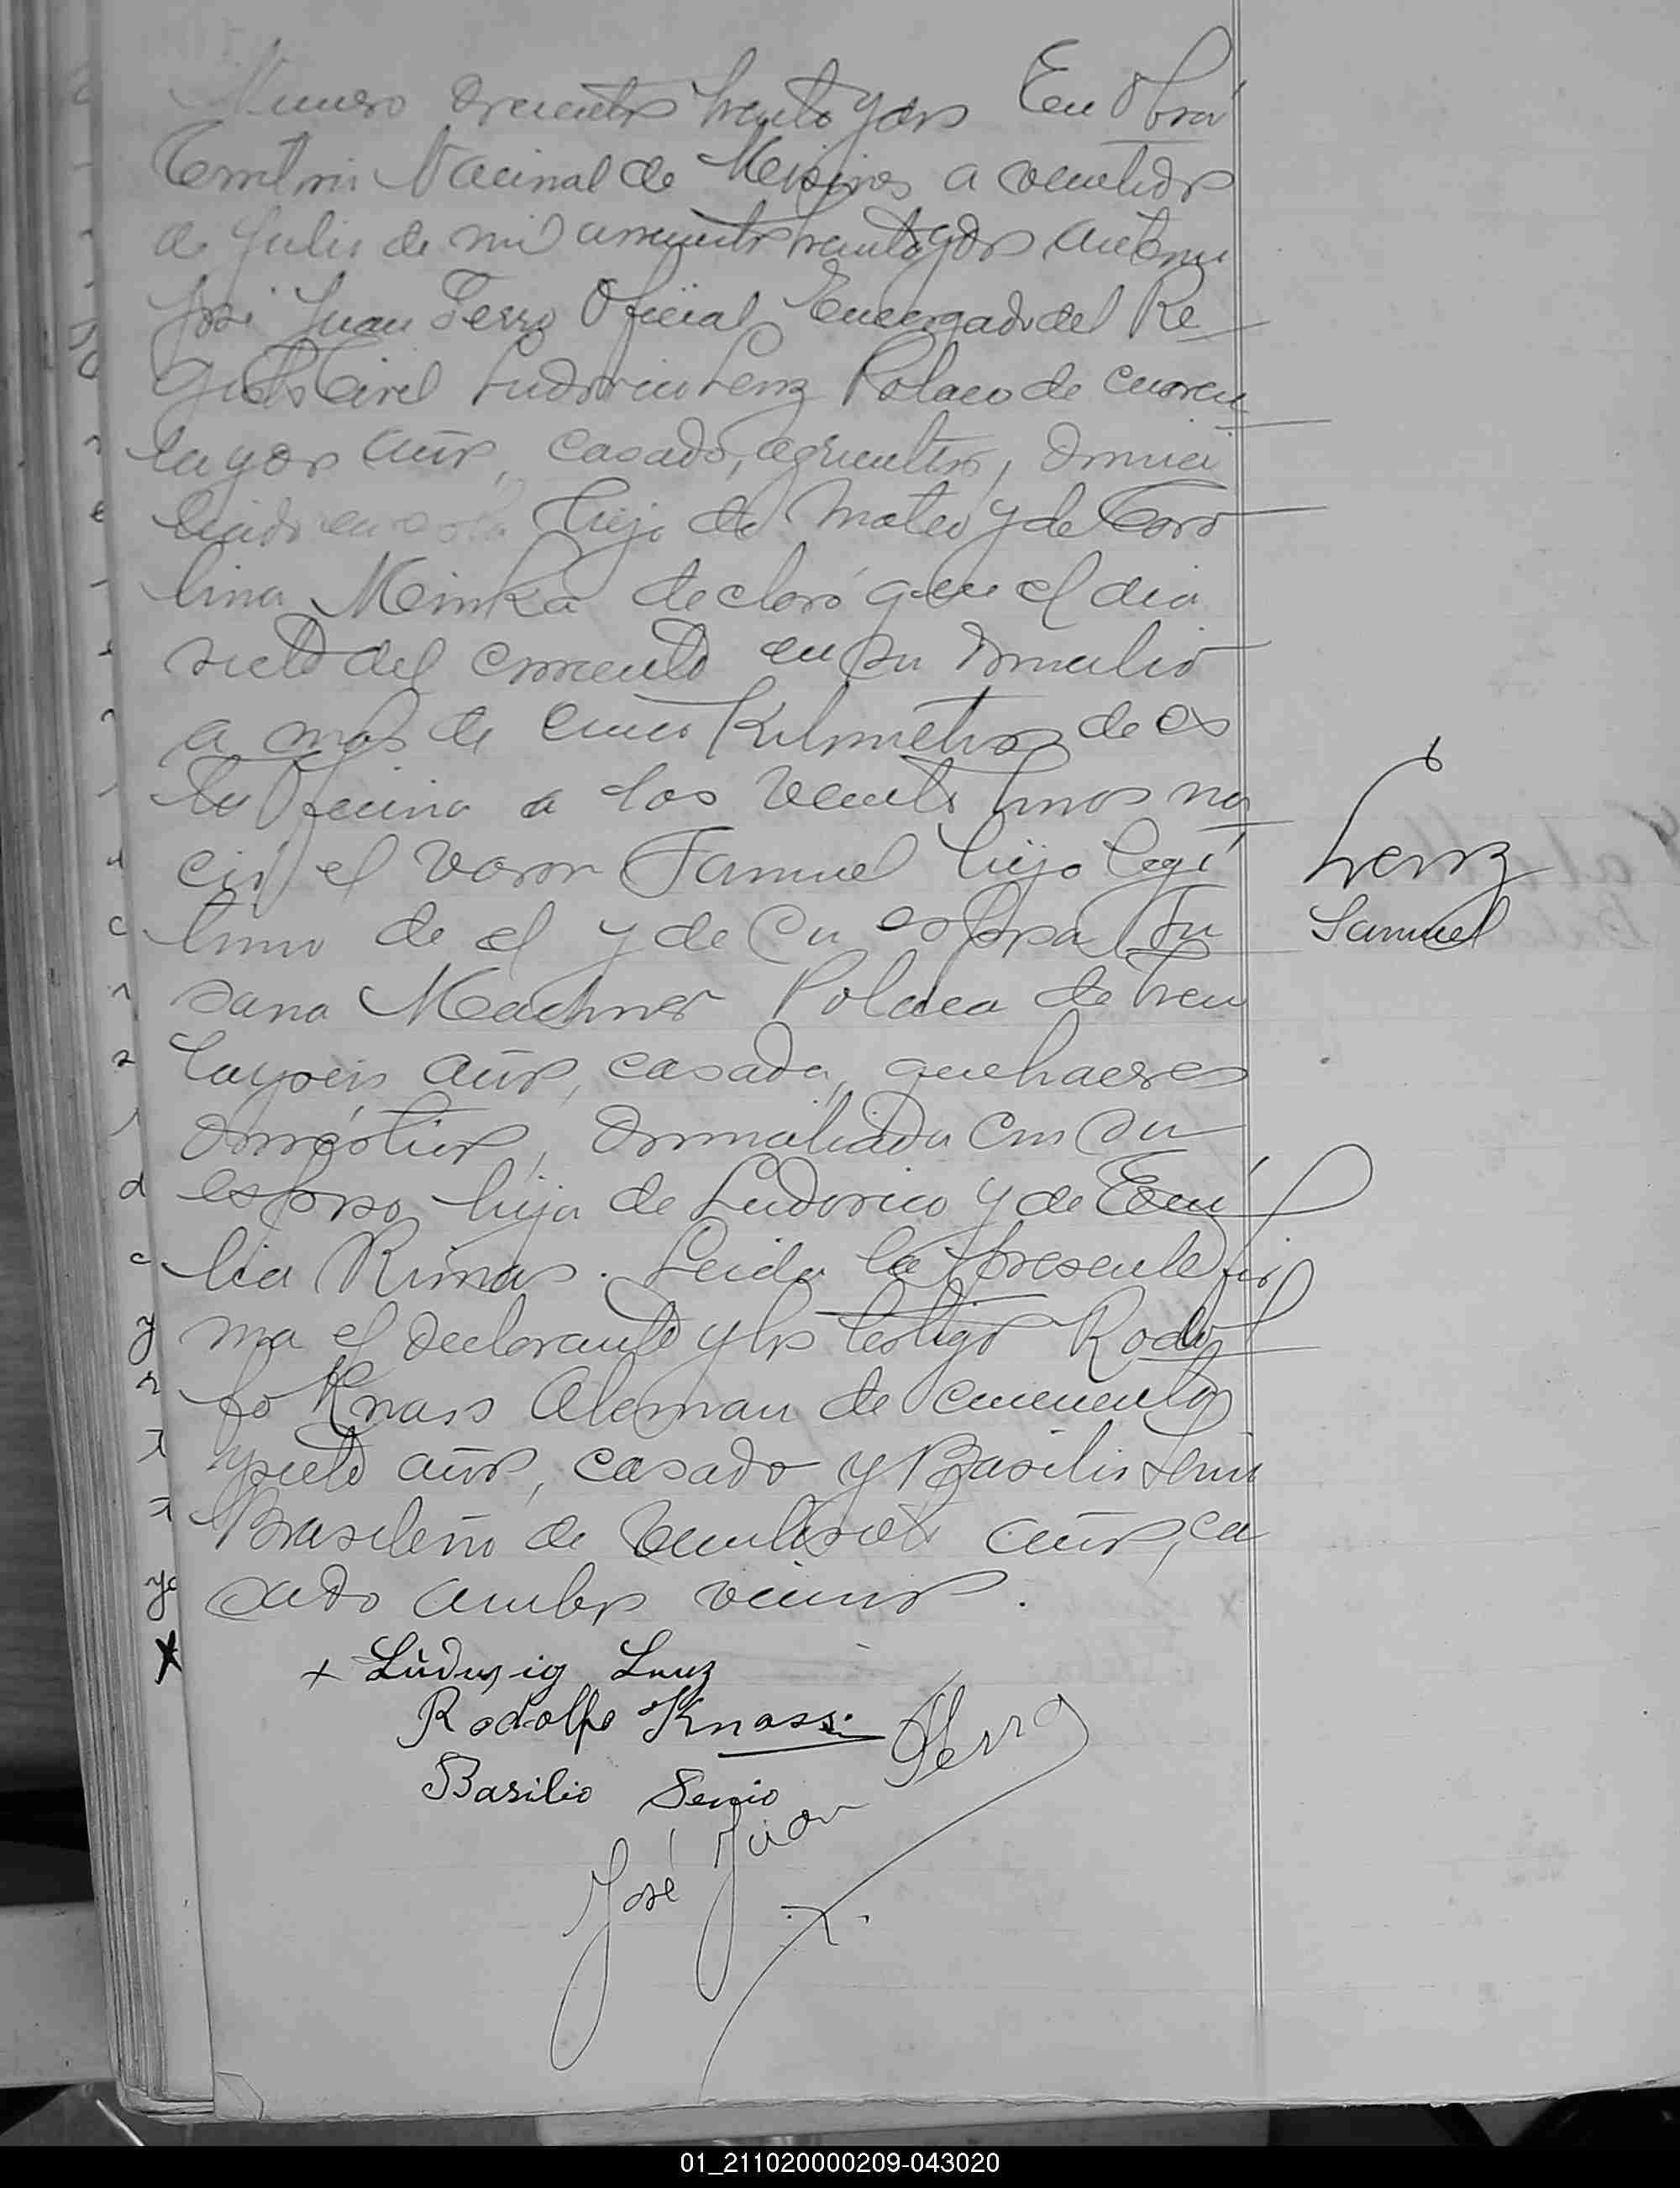 Numero doscientos treinta y dos En Oberá
Territorio Nacional de Misiones a veintidos
de Julio de mil novecientos treinta y dos ante mi
José Juan Ferro Oficial Encargado del Re
gistro Civil Ludovico Lenz Polaco de cuaren
ta y dos años, casado, agricultor, domici
liado en esta hijo de Mateo y de Caro
lina declaró que el dia
siete del corriente en su domicilio
a mas de cinco Kilometros de es
ta Oficina a las veinte horas na
ció el varon Samuel hijo legi
timo de el y de su esposa Su
sana Polaca de trein
ta y seis años, casada, quehaceres
domésticos, domiciliada con su
esposo hija de Ludovico y de Emi
lia Rimas. Leida la presente fir
ma el declarante y los testigos Rodol
fo Knass Aleman de cincuenta
y siete años, casado y Basilio
Brasileño de años, ca
sado ambos vecinos.
Lenz
Samuel
x Ludwig Lenz
Rodolfo Knass
Basilio
José Juan Ferro
01_211020000209-043020